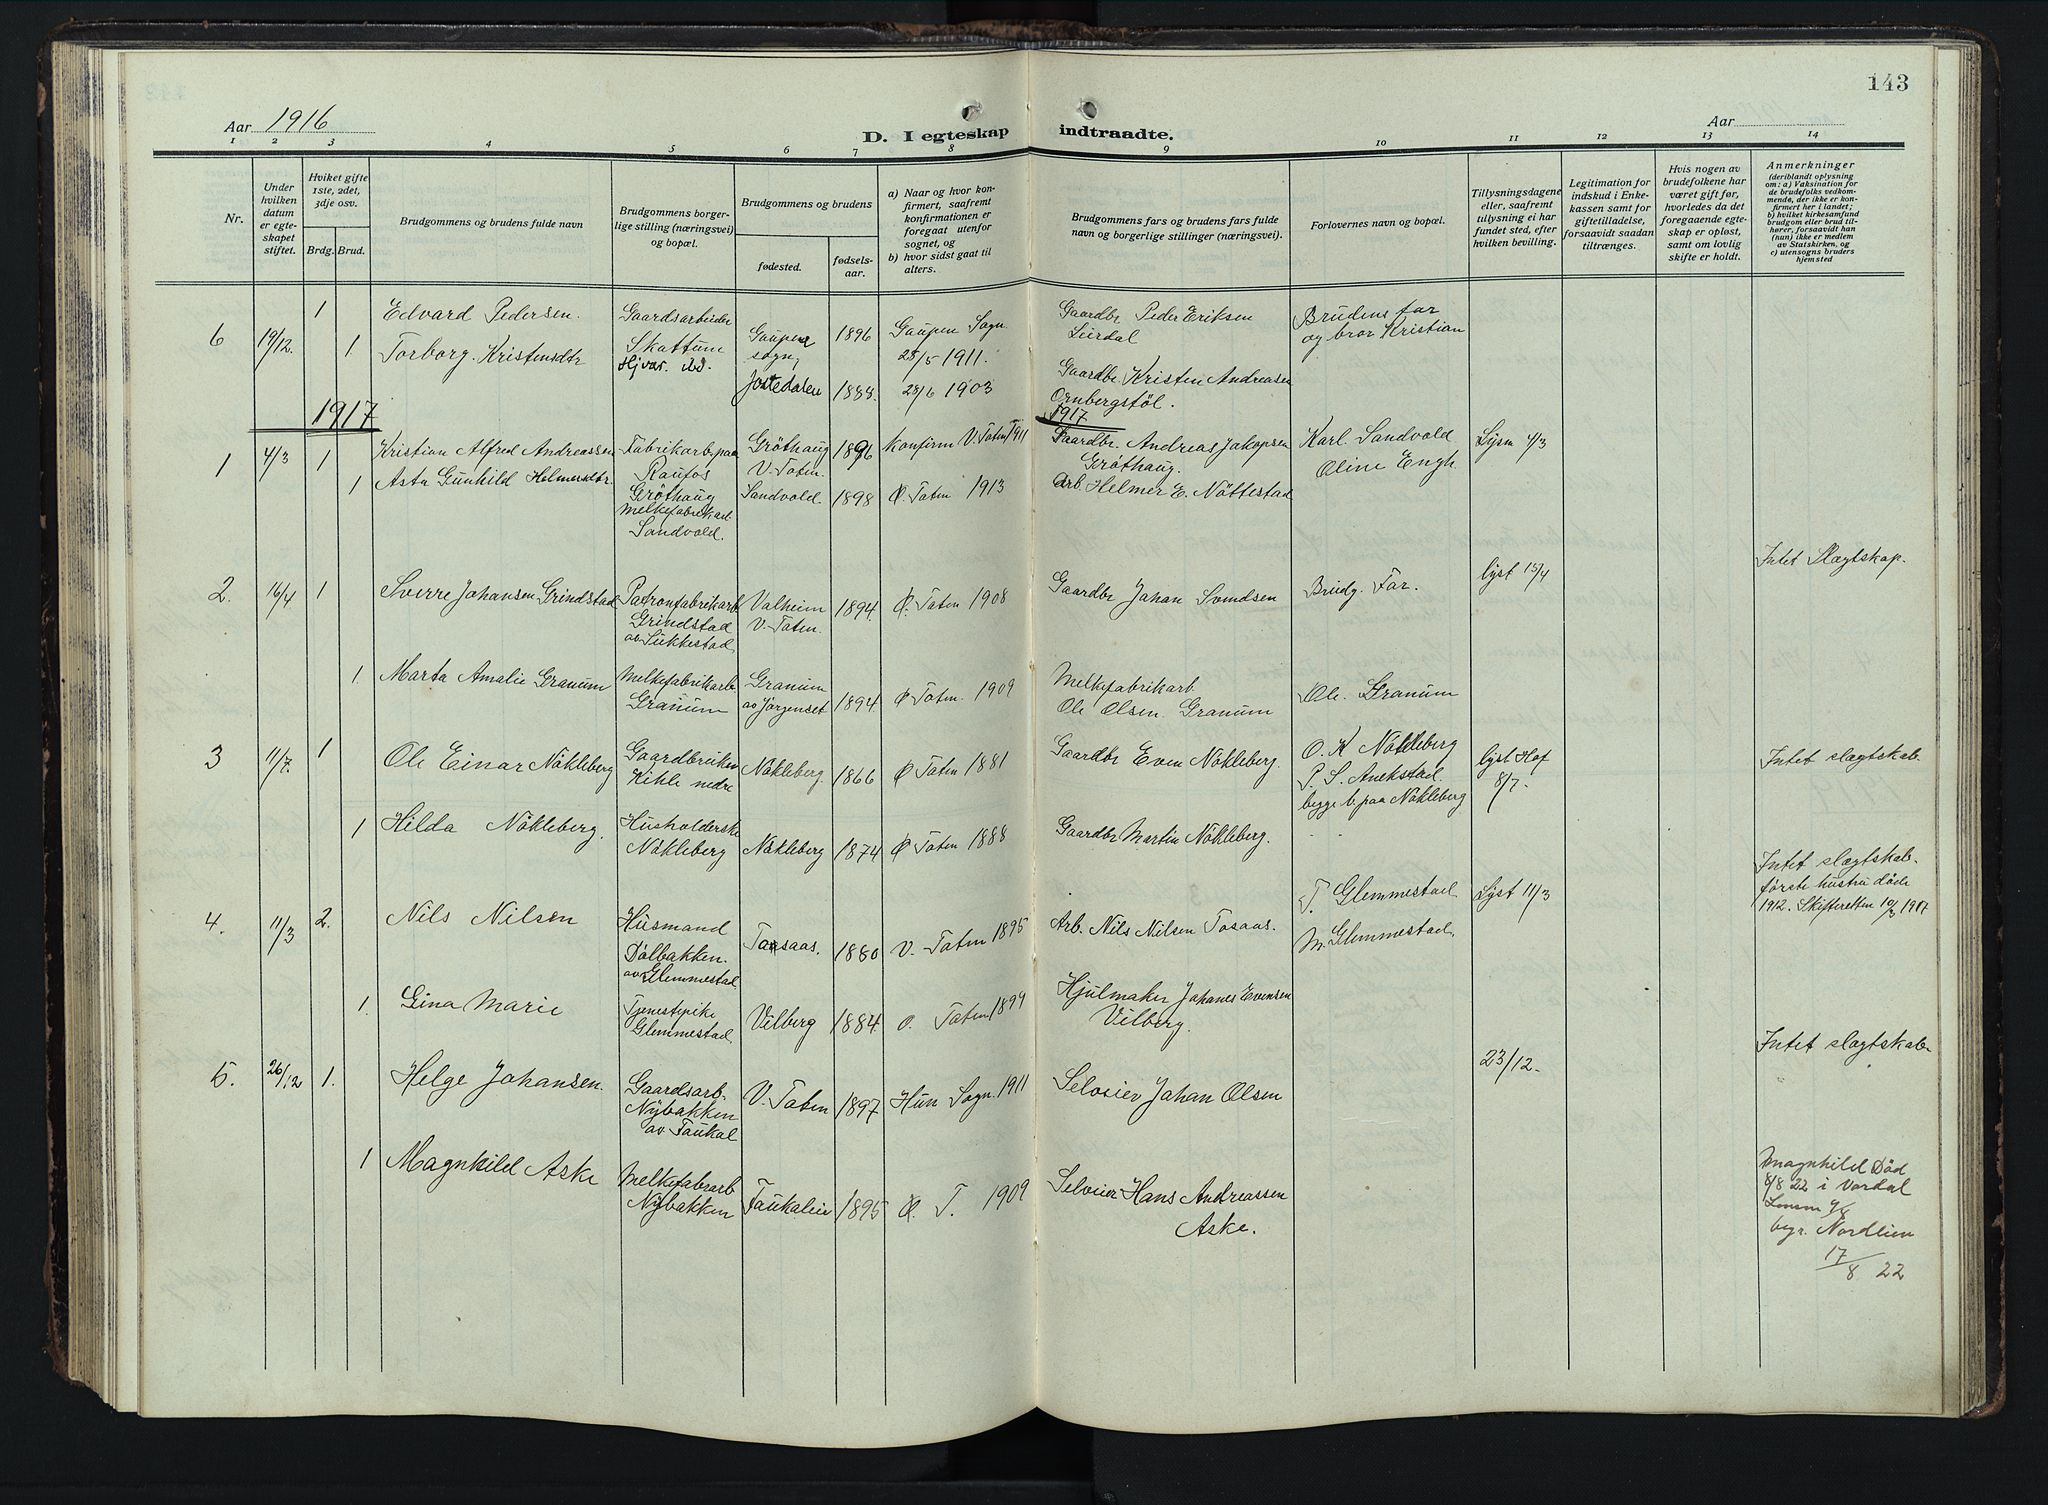 143
Aar 1916
D. I egteskap indtraadte.
Aar
1 2 3 4 5 6 7 8 9 10 11 12 13 14
Nr.
Under
hvilken
datum
er egte-
skapet
stiftet.
Hviket gifte
1ste, 2det,
3dje osv.
Brdg. Brud.
Brudgommens og brudens fulde navn
Brudgommens borger-
lige stilling (næringsvei)
og bopæl.
Brudgommens og brudens
fødested.
fødsels-
aar.
a) Naar og hvor kon-
firmert, saafremt
konfirmationen er
foregaat utenfor
sognet, og
b) hvor sidst gaat til
alters.
Brudgommens fars og brudens fars fulde
navn og borgerlige stillinger (næringsvei).
Forlovernes navn og bopæl.
Tillysningsdagene
eller, saafremt
tillysning ei har
fundet sted, efter
hvilken bevilling.
Legitimation for
indskud i Enke-
kassen samt for
giftetilladelse,
forsaavidt saadan
tiltrænges.
Hvis nogen av
brudefolkene har
været gift før,
hvorledes da det
foregaaende egte-
skap er opløst,
samt om lovlig
skifte er holdt.
Anmerkninger
(deriblandt oplysning
om: a) Vaksination for
de brudefolks vedkom-
mende, der ikke er kon-
firmert her i landet;
b) hvilket kirkesamfund
brudgom eller brud til-
hører, forsaavidt han
(hun) ikke er medlem
av Statskirken, og
c) utensogns bruders
hjemsted
6 19/12. 1 Edvard Pedersen.
Gaardsarbeider
Skattum
Gaupen
sogn,
1896
Gaupen Sogn.
28/5 1911.
Gaardbr Peder Eriksen
Leirdal
Brudens far
og bror Kristian
1 Torborg. Kristensdtr
Hjvær. ibd.
Jostedalen 1888. 28/6 1903
Gaardbr Kristen Andreasen
Ornbergstöl.
1917
1917
1 4/3 1 Kristian Alfred Andreassen
Fabrikarb. paa
Raufos
Gröthaug
Gröthaug
V. Toten.
1896 Konfirm V. Toten 1911
Gaardbr. Andreas Jakopsen
Gröthaug.
Karl. Sandvold
Oline Engh.
Lysn 4/3
1 Asta Gunhild Helmersdtr.
Melkefabrikarb
Sandvold.
Sandvold. 1898 Ø. Toten 1913
Arb Helmer E. Nöttestad
2. 16/4 1 Sverre Johansen Grindstad
Patronfabrikarb
Grindstad
av Sukkestad
Valheim
V. Toten.
1894. Ø. Toten 1908
Gaardbr Johan Svendsen
Brudg. Far.
lyst 15/4
Intet Slægtskap.
1 Marta Amalie Granum
Melkefabrikarb
Granum
Granum
av Jörgenset
1894. Ø Toten. 1909
Melkefabrikarb
Ole Olsen. Granum
Ole. Granum
3 11/7. 1 Ole Einar Nökleberg
Gaardbruker
Kihle nedre
Nökleberg. 1866 Ø Toten 1881
Gaardbr Even Nökleberg.
O. K Nökleberg
P. S. Anekstad.
begge b. paa Nökleberg
lyst Hof
8/7.
Intet slægtskab
1 Hilda Nökleberg.
Husholderske
Nökleberg
Nökleberg 1874 Ø Toten 1888
Gaardbr Martin Nökleberg.
4. 11/3 2. Nils Nilsen
Husmand
Dölbakken.
av Glemmestad
Tosaas. 1880 V. Toten 1895
Arb. Nils Nilsen Tosaas.
T. Glemmestad
M. Glemmestad.
Lyst 11/3
Intet slægtskab.
første hustru døde
1912. Skifteretten 10/3 1917
1. Gina Marie
Tjenestepike
Glemmestad
Vilberg 1884. Ø. Toten 1899
Hjulmaker Johanes Evensen
Vilberg.
5. 26/12 1. Helge Johansen.
Gaardsarb.
Nybakken
av Faukal
V. Toten 1897 Hun Sogn. 1911
Selveier Johan Olsen
23/12.
Intet slægtskab
1 Magnhild Aske
Melkefabrarb
Nybakken
Faukalei 1895 Ø. T. 1909
Selveier Hans Andreassen
Aske.
Magnhild Död
8/8 22 i Vardal
begr. Nordlien
17/8 22